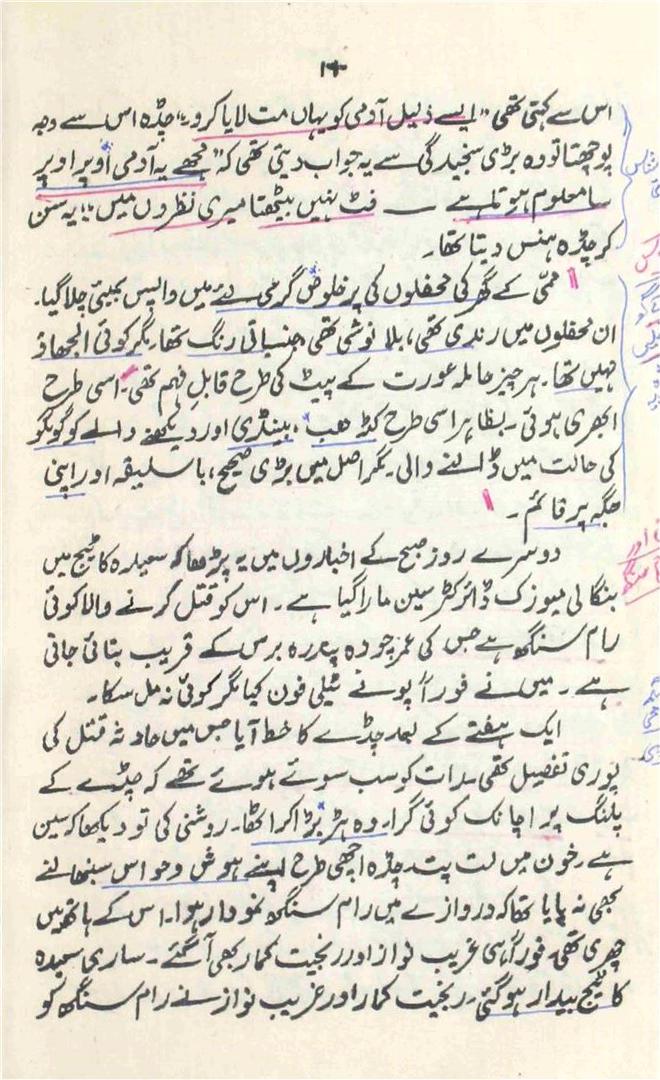 ۱۳
اس سے کہتی تھی "ایسے ذلیل آدمی کو یہاں مت لایا کرو۔" چڈہ اس سے وجہ
پوچھتا تو وہ بڑی سنجیدگی سے یہ جواب دیتی تھی کہ "مجھے یہ آدمی اوپر اوپر
سا معلوم ہوتا ہے ــــ فٹ نہیں بیٹھتا میری نظروں میں"؛ یہ سن
کر چڈہ ہنس دیتا تھا۔
ممّی کے گھر کی محفلوں کی پُرخلوص گرمی لئے میں واپس بمبئی چلا گیا۔
ان محفلوں میں رندی تھی، بلا نوشی تھی، جنسیاتی رنگ تھا مگر کوئی الجھاؤ
نہیں تھا۔ ہر چیز حاملہ عورت کے پیٹ کی طرح قابلِ فہم تھی۔ اسی طرح
ابھری ہوئی۔ بظاہر اسی طرح کڈھب، بینڈی اور دیکھنے والے کو گومگو
کی حالت میں ڈالنے والی۔ مگر اصل میں بڑی صحیح، باسلیقہ اور اپنی
جگہ پر قائم۔
دوسرے روز صبح کے اخباروں میں یہ پڑھا کہ سعیدہ کاٹیج میں
بنگالی میوزک ڈائرکٹر سین مارا گیا ہے۔ اس کو قتل کرنے والا کوئی
رام سنگھ ہے جس کی عمر چودہ پندرہ برس کے قریب بتائی جاتی
ہے۔ میں نے فوراً پونے ٹیلی فون کیا مگر کوئی نہ مل سکا۔
ایک ہفتے کے بعد چڈے کا خط آیا جس میں حادثہ قتل کی
پوری تفصیل تھی۔ رات کو سب سوئے ہوئے تھے کہ چڈے کے
پلنگ پر اچانک کوئی گرا۔ وہ ہڑبڑا کر اٹھا۔ روشنی کی تو دیکھا کہ سین
ہے۔ خون میں لت پت۔ چڈہ اچھی طرح اپنے ہوش و حواس سنبھالنے
بھی نہ پایا تھا کہ دروازے میں رام سنگھ نمودار ہوا۔ اس کے ہاتھ میں
چھری تھی۔ فوراً ہی غریب نواز اور رنجیت کمار بھی آگئے۔ ساری سعیدہ
کاٹیج بیدار ہو گئی۔ رنجیت کمار اور غریب نواز نے رام سنگھ کو